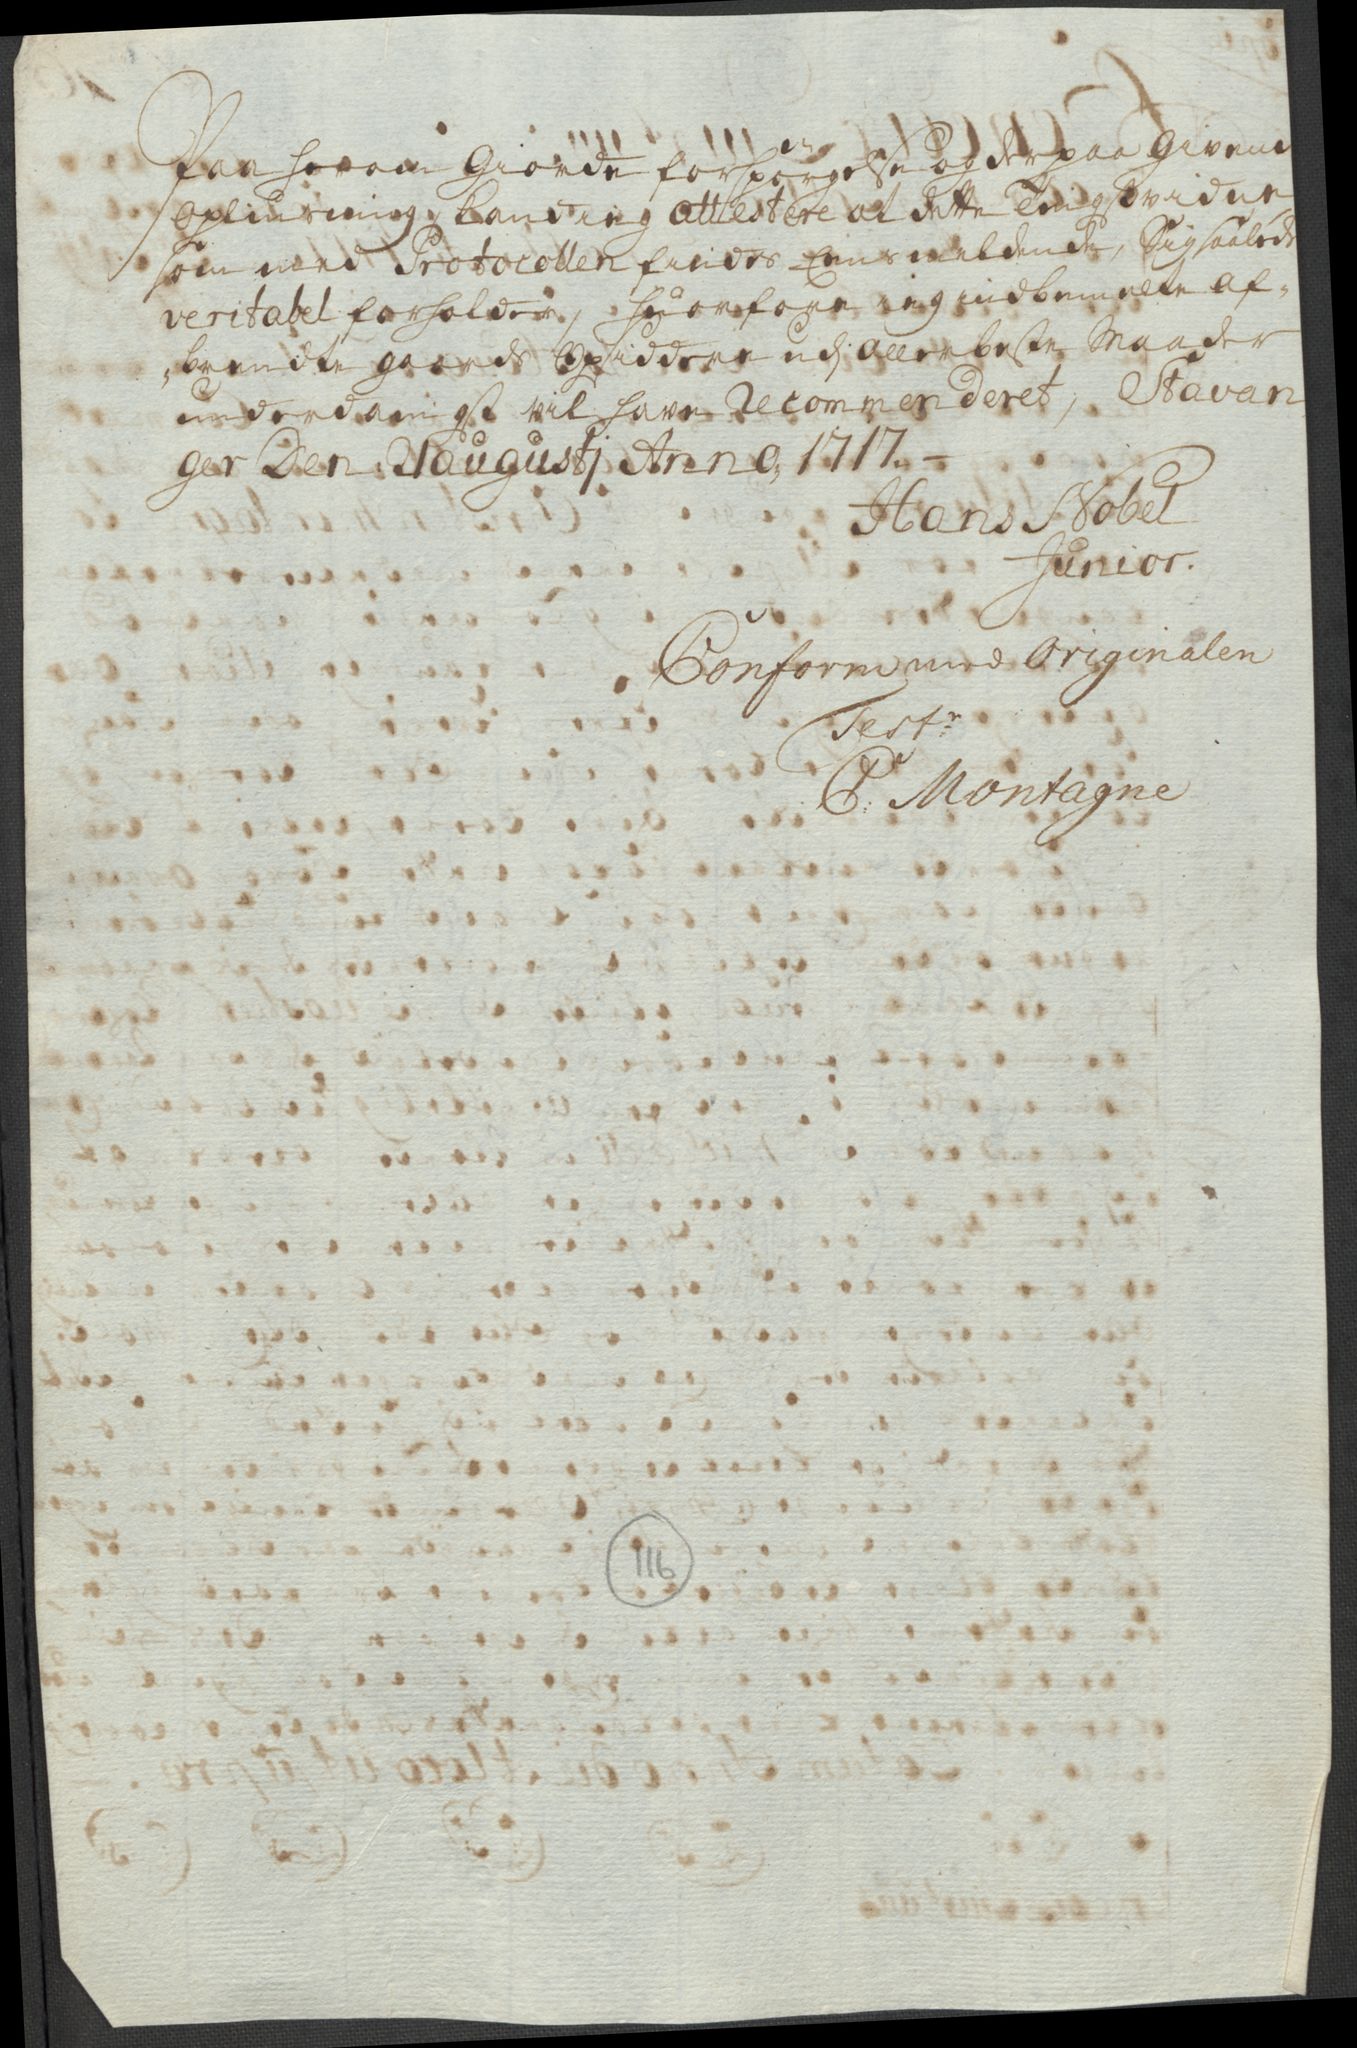 Paa herom Giorde forspørgelse og derpaa Given
Opliusning, kand ieg attestere at dette Tingsvidne
som med Protocollen findes Eensmeldende, Sig saaledes
veritabel forholder, huorfore ieg indbemelte af-
brendte gaards Opsiddere udj allerbeste Maader
underdanigst vil have Recommenderet, Stavan
ger Den: 21 augustj Anno, 1717. –
Hans Nobel
Junior.
Conform med Originalen
Test:
P: Montagne
116